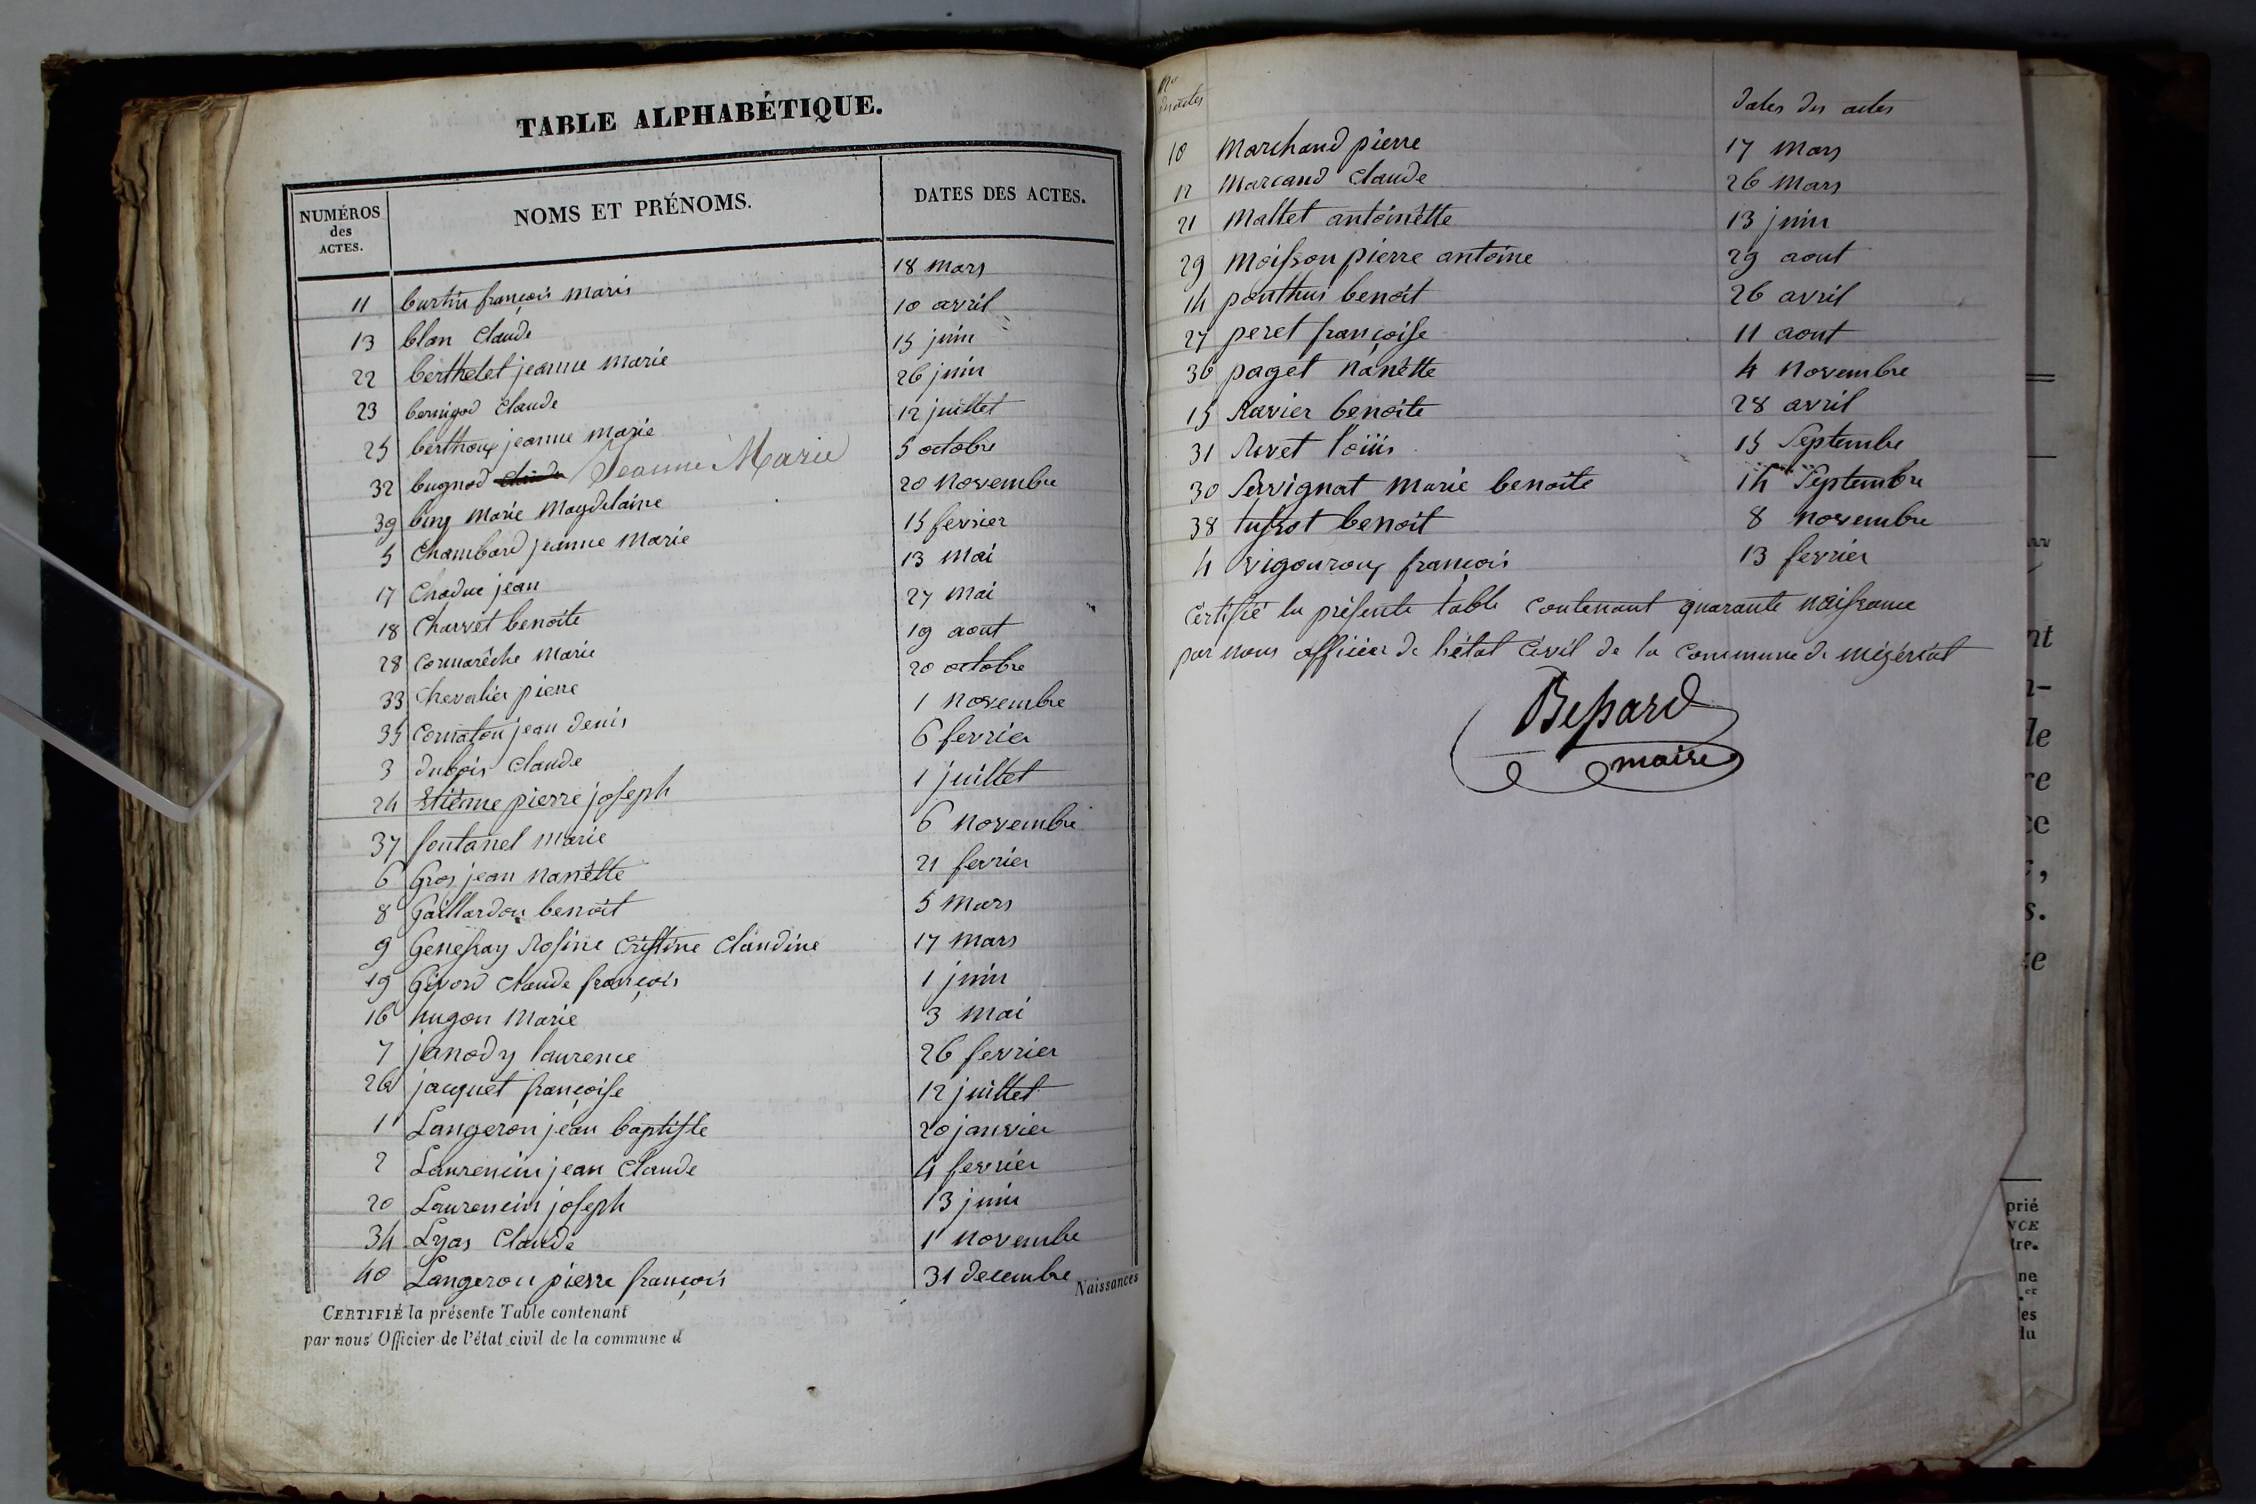 TABLE ALPHABÉTIQUE.
NUMÉROS des ACTES. NOMS ET PRÉNOMS. DATES DES ACTES.
11 burtin françois maris 18 mars
13 blan claude 10 avril
22 berthelet jeanne marie 15 juin
23 bernigod claude 26 juin
25 berthoux jeanne marie 12 juillet
32 bugnod claude Jeanne Marie 5 octobre
39 biny marie magdelaine 20 novembre
5 Chambard jeanne marie 15 fevrier
17 Chaduc jean 13 mai
18 Charvet benoite 27 mai
28 Cormarêche marie 19 aout
33 Chevalier pierre 20 octobre
35 Cornaton jean denis 1 novembre
3 dubois claude 6 fevrier
24 Etiènne pierre joseph 1 juillet
37 fontanel marie 6 novembre
6 Gros jean nanètte 21 fevrier
8 Gaillardon benoit 5 mars
9 Genessay Rosine Cristine Claudine 17 mars
19 Givord claude françois 1 juin
16 hugon marie 3 mai
7 janody laurence 26 fevrier
26 jacquet françoise 12 juillet
1 Langeron jean baptiste 20 janvier
2 Laurencin jean claude 4 fevrier
20 Laurencin joseph 13 juin
34 Lyas Claude 1 novembre
40 Langeron pierre françois 31 decembre
Naissances
CERTIFIÉ la présente Table contenant
par nous Officier de l'état civil de la commune d
Nos des actes dates des actes
10 Marchand pierre 17 mars
12 Marcand Claude 26 mars
21 Mallet antoinètte 13 juin
29 Moisson pierre antoine 29 aout
14 ponthus benoit 26 avril
27 peret françoise 11 aout
36 paget nanètte 4 novembre
15 Ravier benoite 28 avril
31 Rivet loüis 15 Septembre
30 Servignat marie benoite 14 Septembre
38 tissot benoit 8 novembre
4 vigouroux françois 13 fevrier
Certifié la présente table contenant quarante naissance
par nous officier de l'état civil de la commune de mézériat
Bessard
maire
nt
le
re
ce
s.
prié
NCE
tre.
ne
es
du